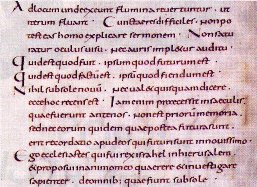 Adlocum undeexeunt fluminareuertuntur ut
iterum fluant Cunctaeresdifficiles nonpo
testeas homo explicare sermonem Nonsatu
ratur oculusuisu necauris impletur auditu
Quidestquodfuit ipsumquodfuturumest
Quidestquodfactumest ipsumquodfiendumest
Nihilsubsolenouum necualetquisquamdicere
eccehocrecensest Iamenim praecessitinsaeculis
quaefuerunt antenos nonestpriorummemoria
sedneceorumquidem quaeposteafuturasunt
eritrecordatio apudeosquifuturisunt innouissimo
Egoecclesiastes quifuirexisrahel inhierusalem
etproposuiinanimomeo quaerereetinuestigare
sapienter deomnibus quaefiunt subsole